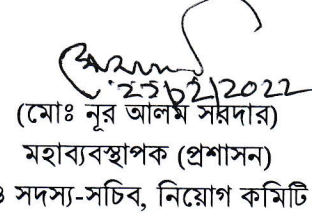 ২২/০২/২০২২
(মোঃ নূর আলম সরদার)
মহাব্যবস্থাপক (প্রশাসন)
ও সদস্য-সচিব, নিয়োগ কমিটি